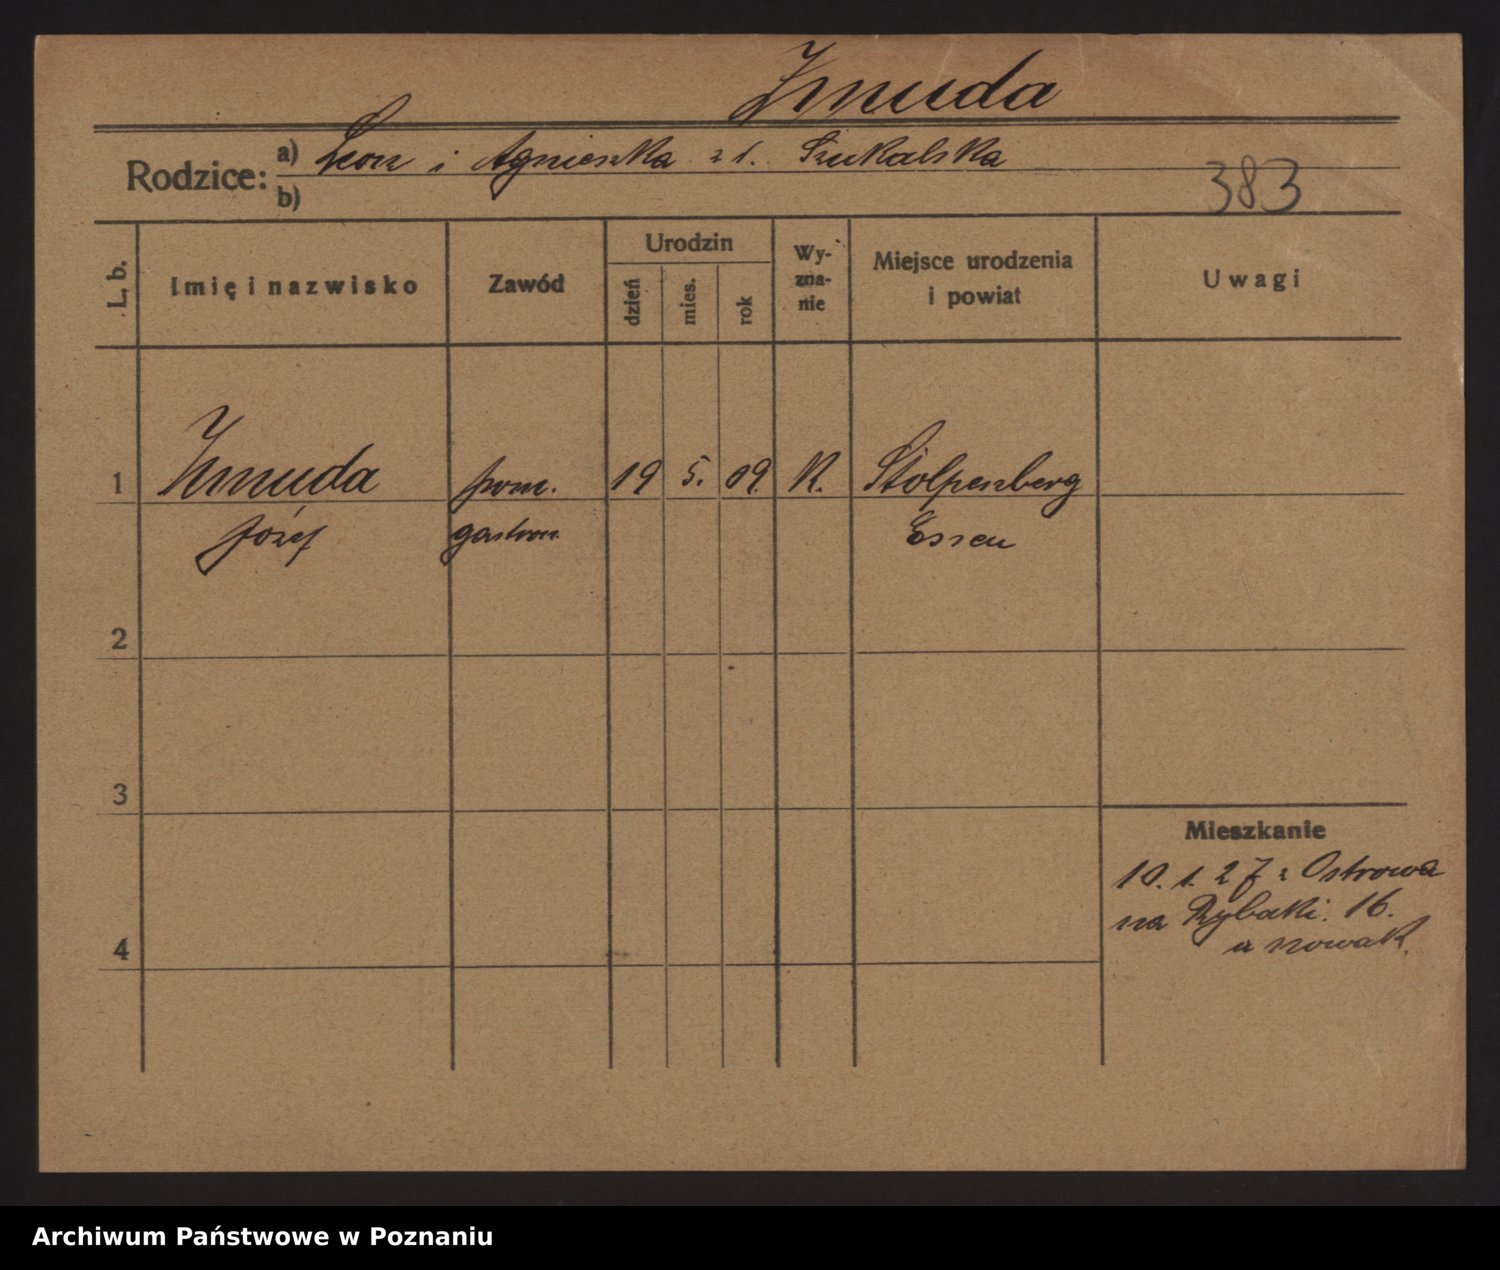 Żmuda
Rodzice: a) Leon i Agnieszka z d. Szukalska
b)
383
L. b.
Imię i nazwisko
Zawód
Urodzin
dzień
mies.
rok
Wy-
zna-
nie
Miejsce urodzenia
i powiat
Uwagi
1 Żmuda pom. 19 5. 09. K. Stolpenberg
Józef gastron. Essen
2
3
Mieszkanie
10. 1. 27 z Ostrowa
na Rybaki. 16.
u Nowak.
4
Archiwum Państwowe w Poznaniu